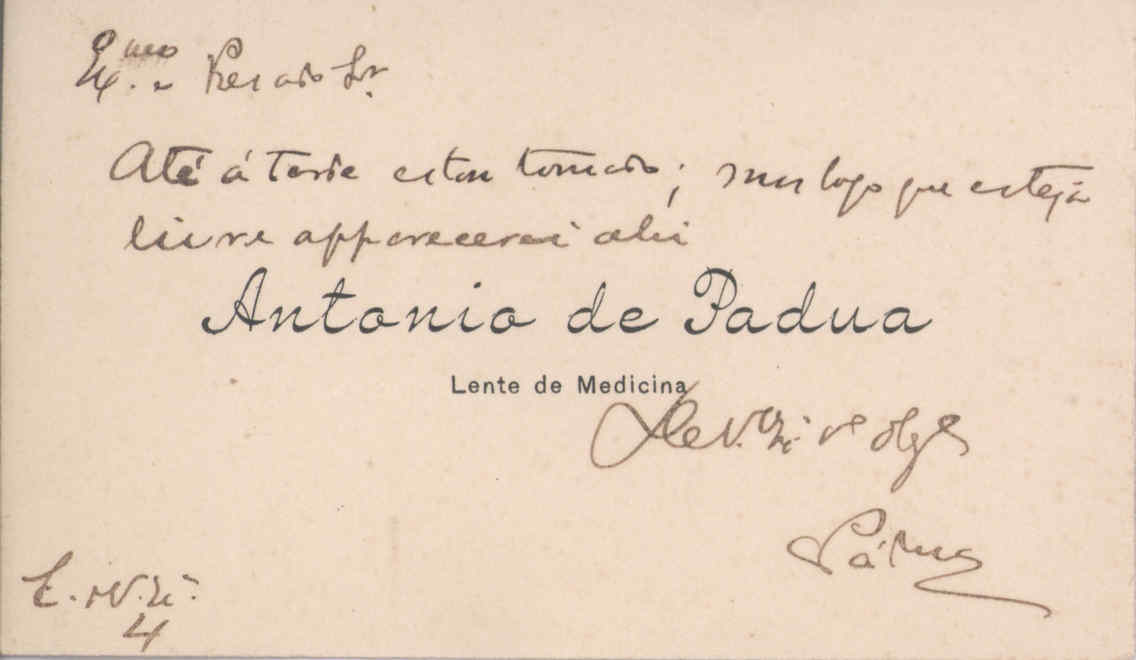 Ex.mo e Presado Sr.
Até á tarde estou tomado; mas logo que esteja
livre apparecerei ahi
Antonio de Padua
Lente de Medicina
De V. Ex.
Pádua
4